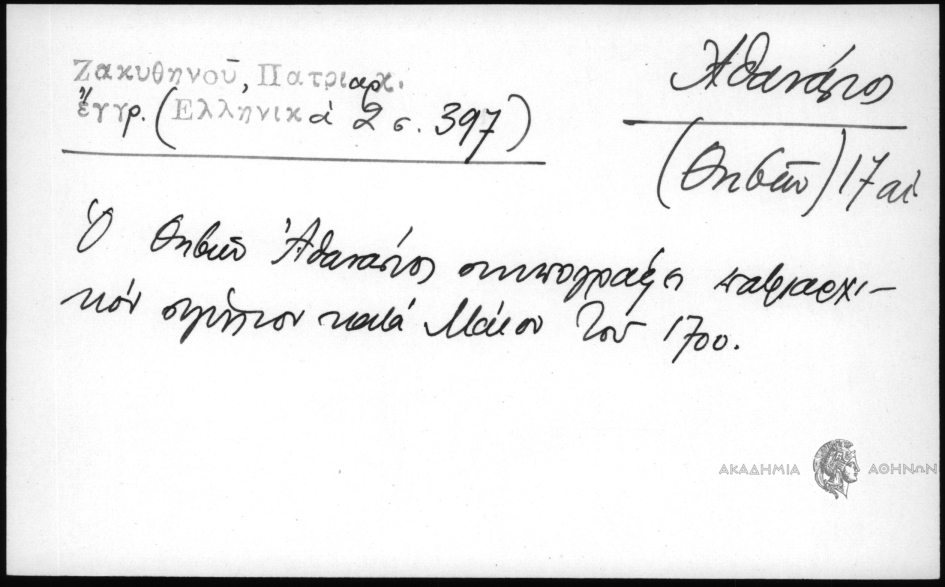 Ζακυθηνοῦ, Πατριαρχ.
ἔγγρ. (Ἑλληνικὰ 2 σ. 397)
Ἀθανάσιος
(Θηβῶν) 17 αἰ
Ὁ Θηβῶν Ἀθανάσιος συνυπογράφει πατριαρχι-
κόν σιγίλλιον κατά Μάϊον τοῦ 1700.
ΑΚΑΔΗΜΙΑ ΑΘΗΝΩΝ